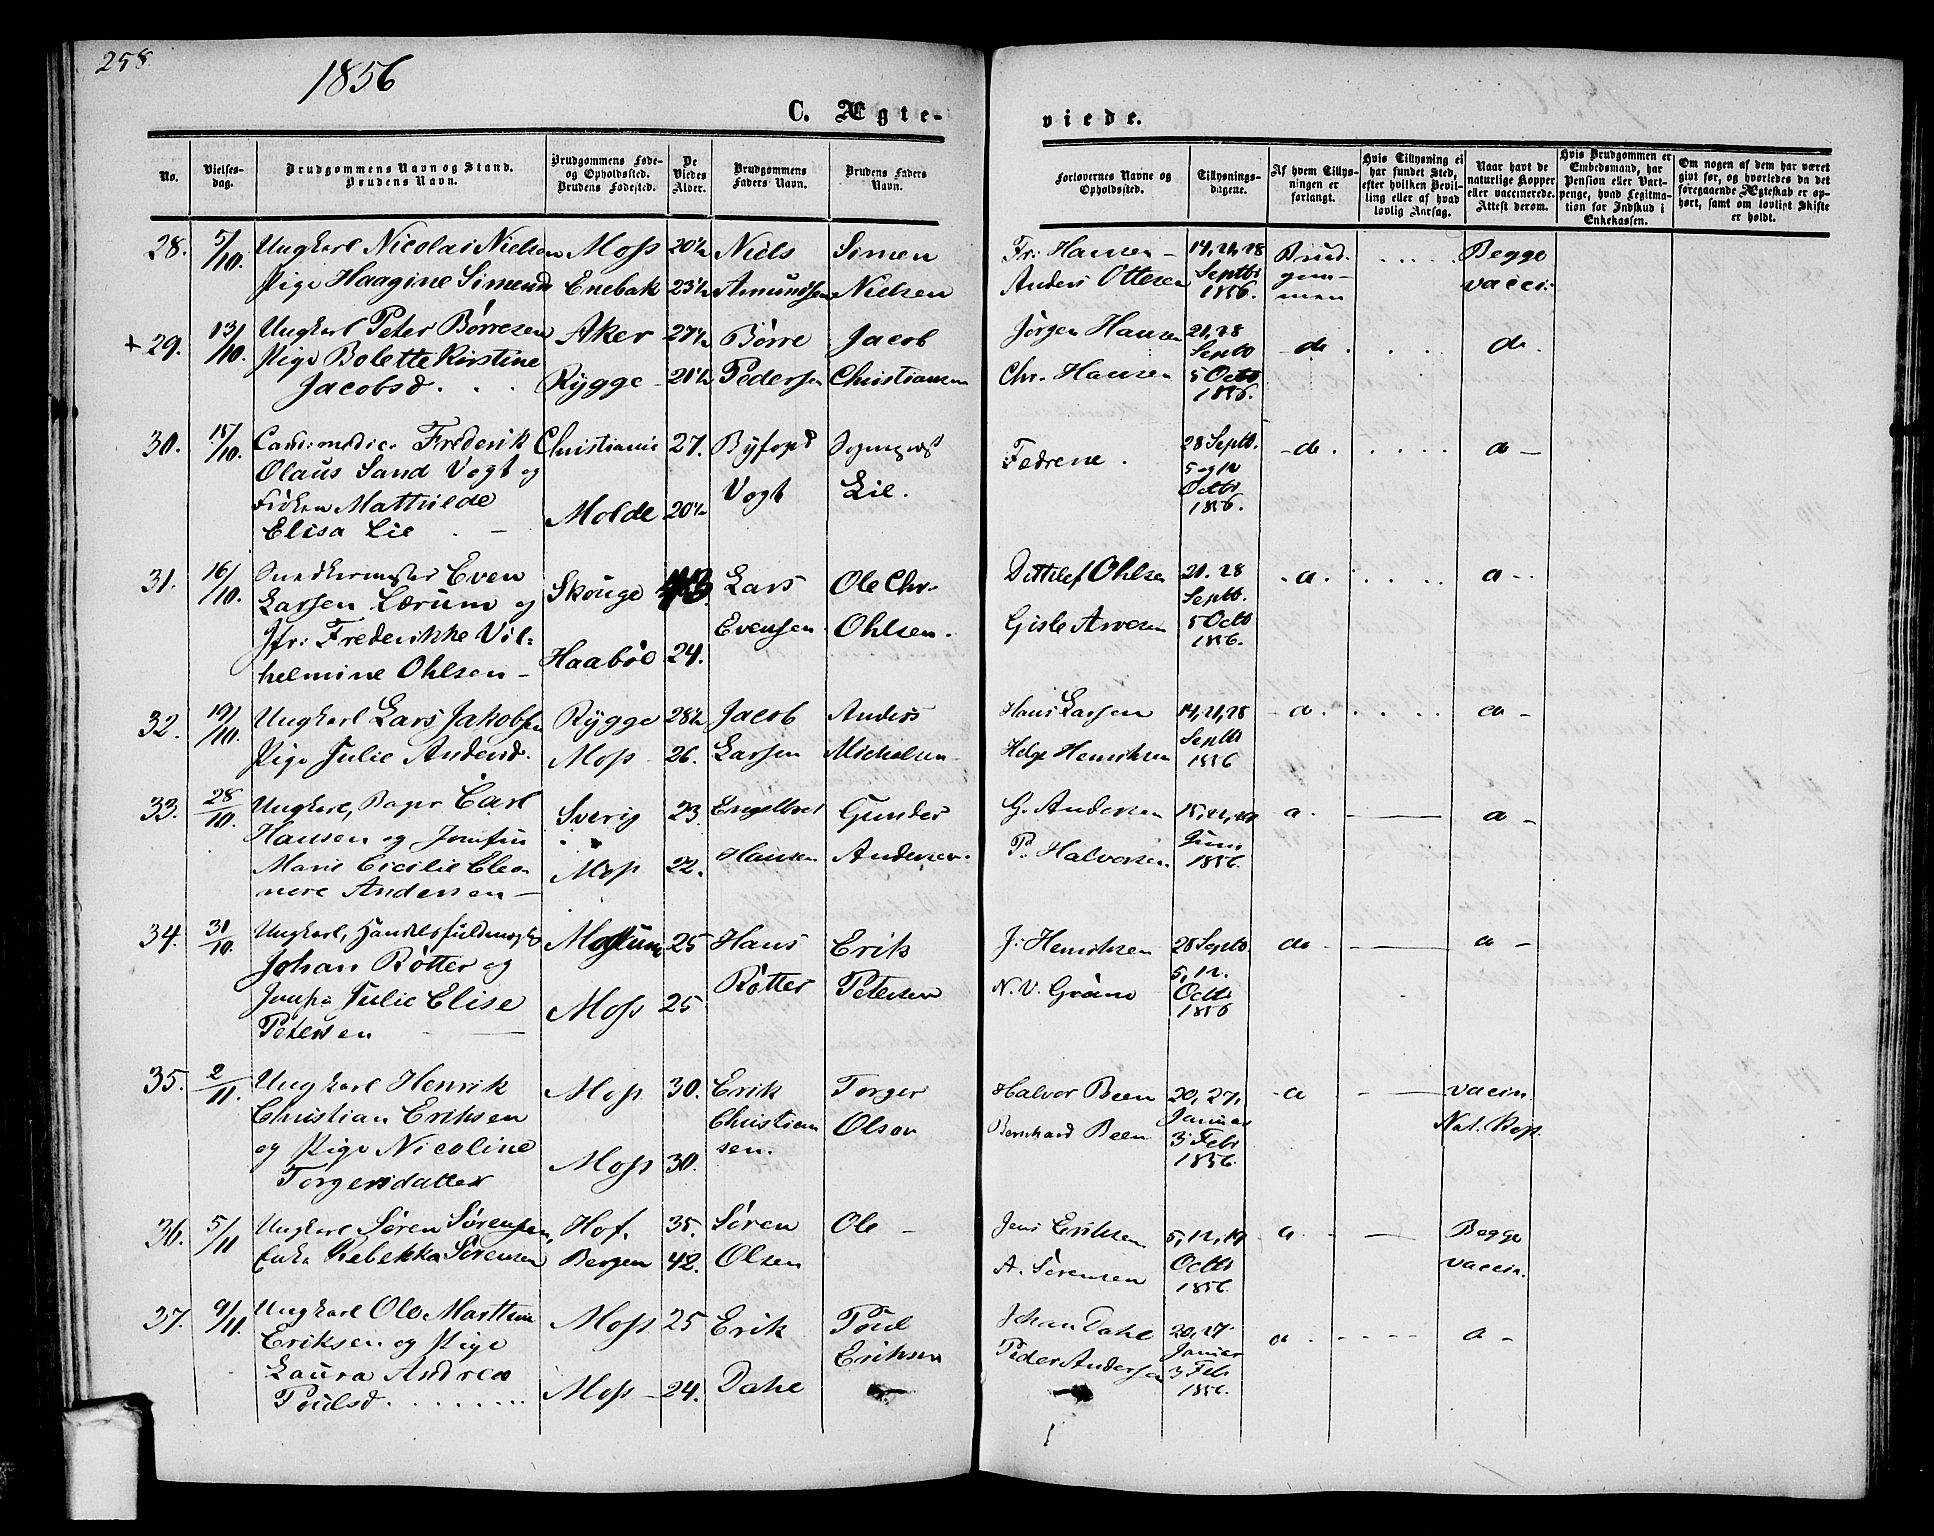 258
1856
C. Ægte-
viede.
No.
Vielses-
dag.
Brudgommens Navn og Stand.
Brudens Navn.
Brudgommens Føde-
og Opholdsted.
Brudens Fødested.
De
Viedes
Alder.
Brudgommens
Faders Navn.
Brudens Faders
Navn.
Forlovernes Navne og
Opholdssted.
Tillysnings-
dagene.
Af hvem Tillys-
ningen er
forlangt.
Hvis Tillysning ei
har fundet Sted,
efter hvilken Bevil-
ling eller af hvad
lovlig Aarsag.
Naar havt de
naturlige Kopper
eller vaccinerede.
Attest derom.
Hvis Brudgommen er
Embedsmand, har
Pension eller Vart-
penge, hvad Legitima-
tion for Indskud i
Enkekassen.
Om nogen af dem har været
gift før, og hvorledes da det
foregaaende Ægteskab er op-
hørt, samt om lovligt Skifte
er holdt.
28. 5/10. Ungkarl Nicolai Nielsen Moss 20½ Niels Simen Fr: Hansen - 14, 21, 28 Brud- Begge
Pige Haagine Simensd Enebak 23½ Amundsen Nielsen Anders Ottesen Septbr 1856. gum- vaccin.
men
+ 29. 13/10. Ungkarl Peter Børresen Aker 27½ Børre Jacob Jørgen Hansen 21, 28 - do. do.
Pige Bolette Kirstine Septb
Jacobsd. Rygge 21½ Pedersen Christiansen Chr. Hansen 5 Octb 1856.
30. 15/10. Cand: medic: Frederik Christiania 27. Byfogd Sogneprest Fædrene. 28 Septb. - do.
Olaus Sand Vogt og Vogt Lie. 5 og 12
Frøken Mathilde Octbr
Elisa Lie Molde 20½ 1856.
31. 16/10. Snedkermester Even Skouge 43. Lars Ole Chr. Dittlef Ohlsen 21. 28
Larsen Lærum og Evensen Ohlsen. Septb.
Jfr: Frederikke Vil- Gisle Arvesen 5 Octb
helmine Ohlsen - Haabøl 24. 1856.
32. 19/10. Ungkarl Lars Jakobsen Rygge 28½ Jacob Anders Hans Larsen 14, 21, 28
Pige Julie Andersd. Moss 26. Larsen Michelsen Helge Henriksen Septbr 1856
33. 28/10. Ungkarl, Carl Sverig 23. Engelbret Gunder G. Andersen 15, 22,
Hansen og Jomfru Juni
Marie Cicilie Eleo- Moss 22. Hansen Andersen. P. Halvorsen 1856.
nore Andersen -
34. 31/10. Ungkarl, Handelsfuldmægtig 25 Hans Erik J: Henriksen 28 Septb. do
Johan Røtter og 5, 12.
Jomfr Julie Elise Moss 25 Røtter Petersen N. V. Octbr
Petersen 1856
35. 2/11. Ungkarl Henrik Moss 30. Erik Torger Halvor Been 20, 27, vaccin.
Christian Eriksen Christian- Olsen Januar
og Pige Nicoline Moss 30. sen. Bernhard Been 3 Febr Nat. Kop.
Torgersdatter 1856.
36. 5/11 Ungkarl Søren Sørensen, Hof. 35. Søren Ole - Jens Eriksen 5, 12, 19 Begge
Enke Rebekka Sørensen Bergen 42. Olsen A. Sørensen Octbr 1856. vaccin.
37. 9/11. Ungkarl Ole Marthin Moss 25 Erik Poul Johan Dahl 20, 27
Eriksen og Pige Eriksen Januar
Laura Andrea Moss - 24. Dahl Peder Andersen 3 Feb
Poulsd. 1856.